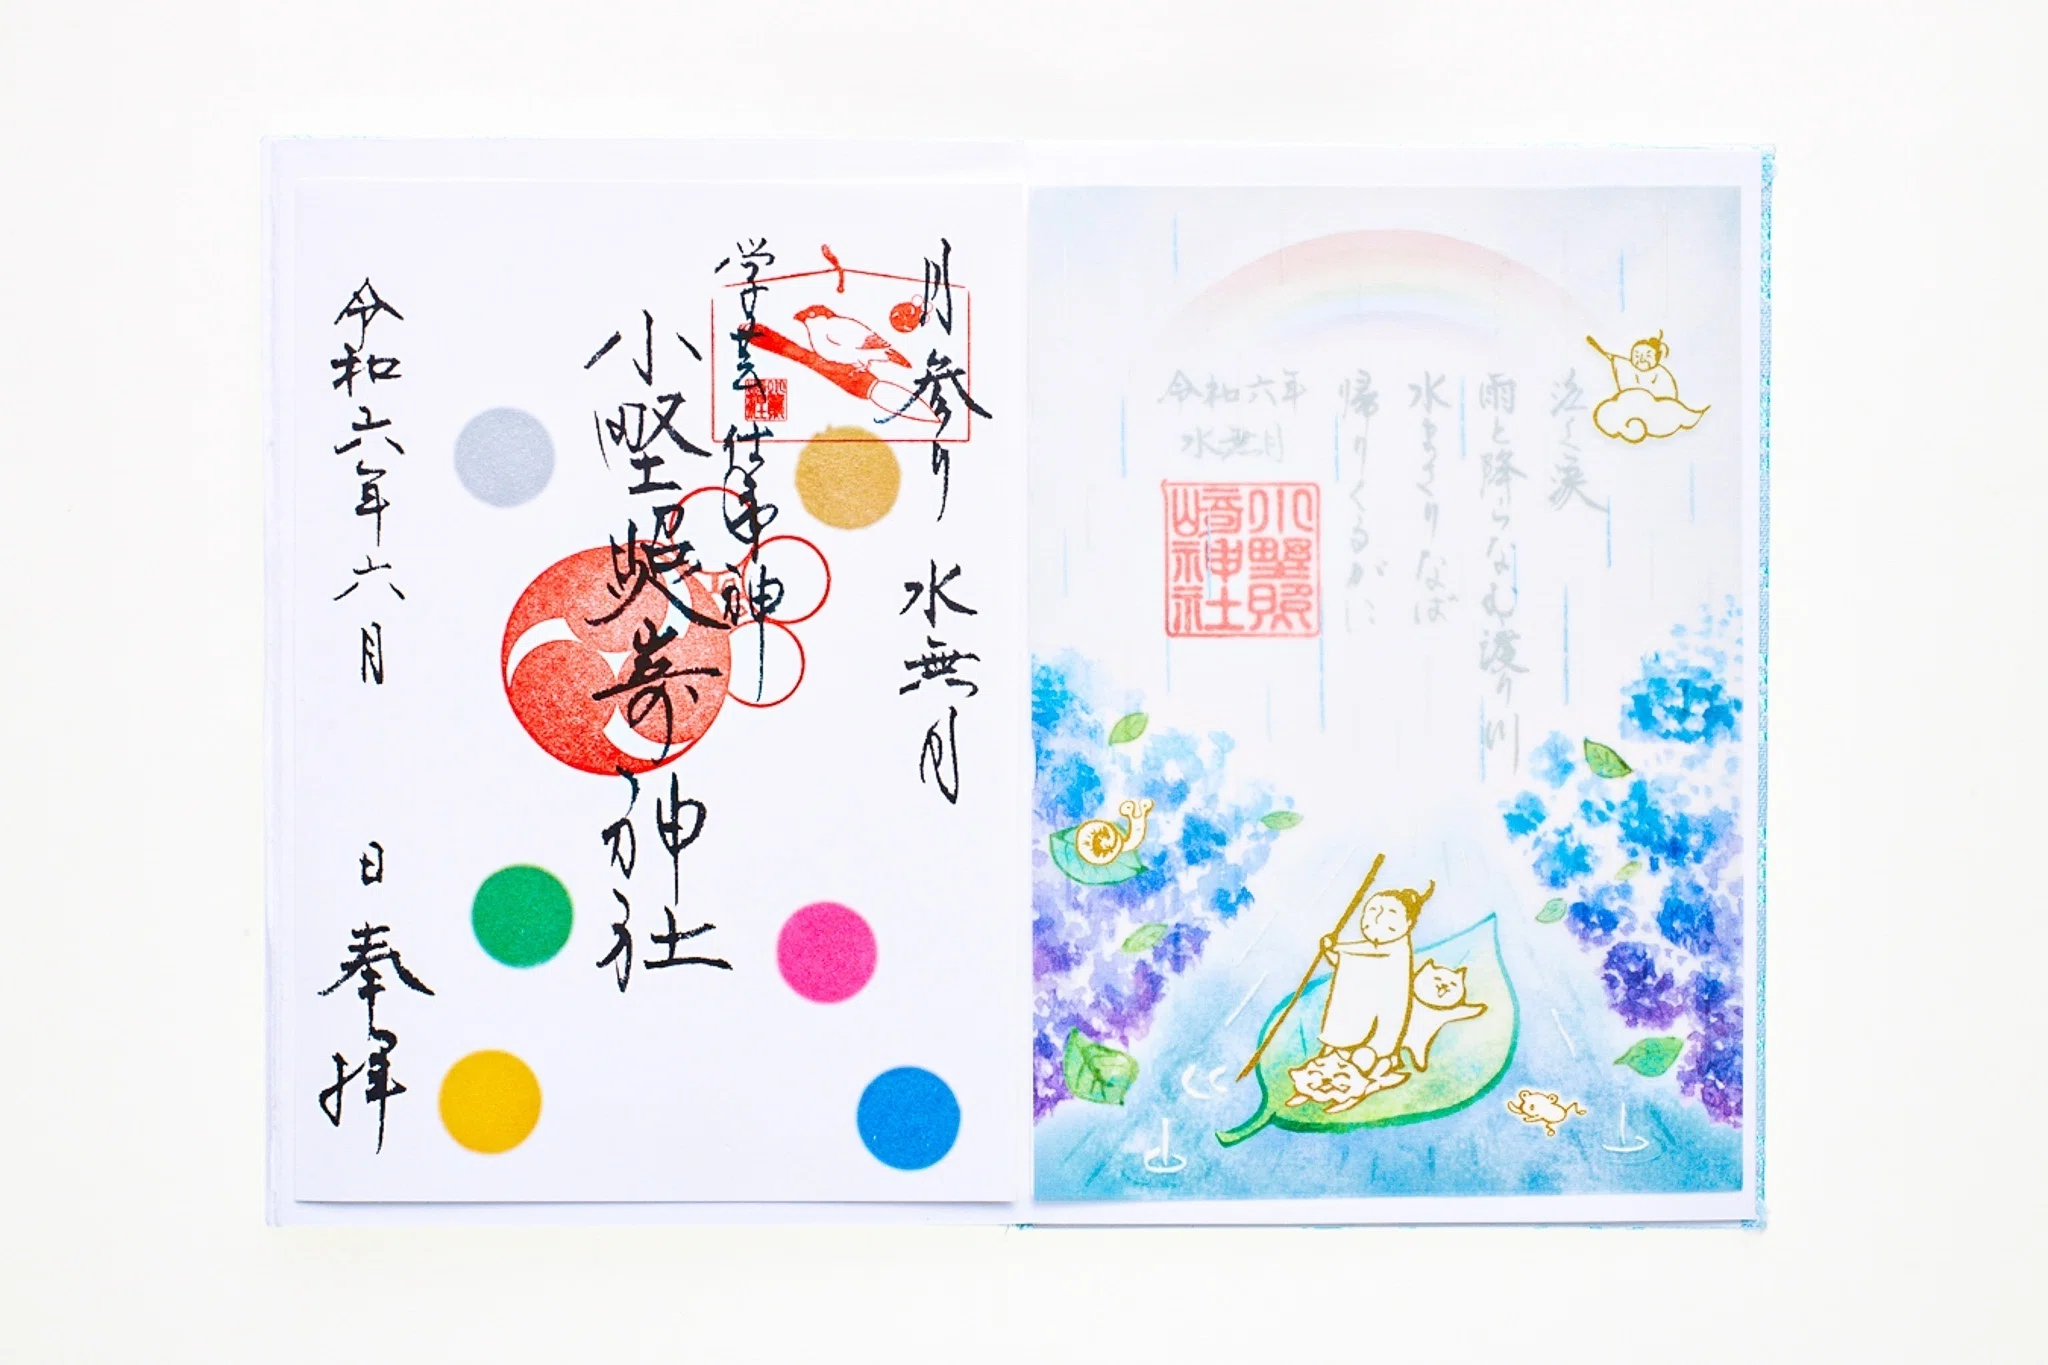 泣く涙
雨と降らなむ渡り川
水まさりなば
帰りくるがに
令和六年
水無月
小野照
崎神社
月参り 水無月
学芸 仕事神
小野照崎神社
令和六年六月 日 奉拝